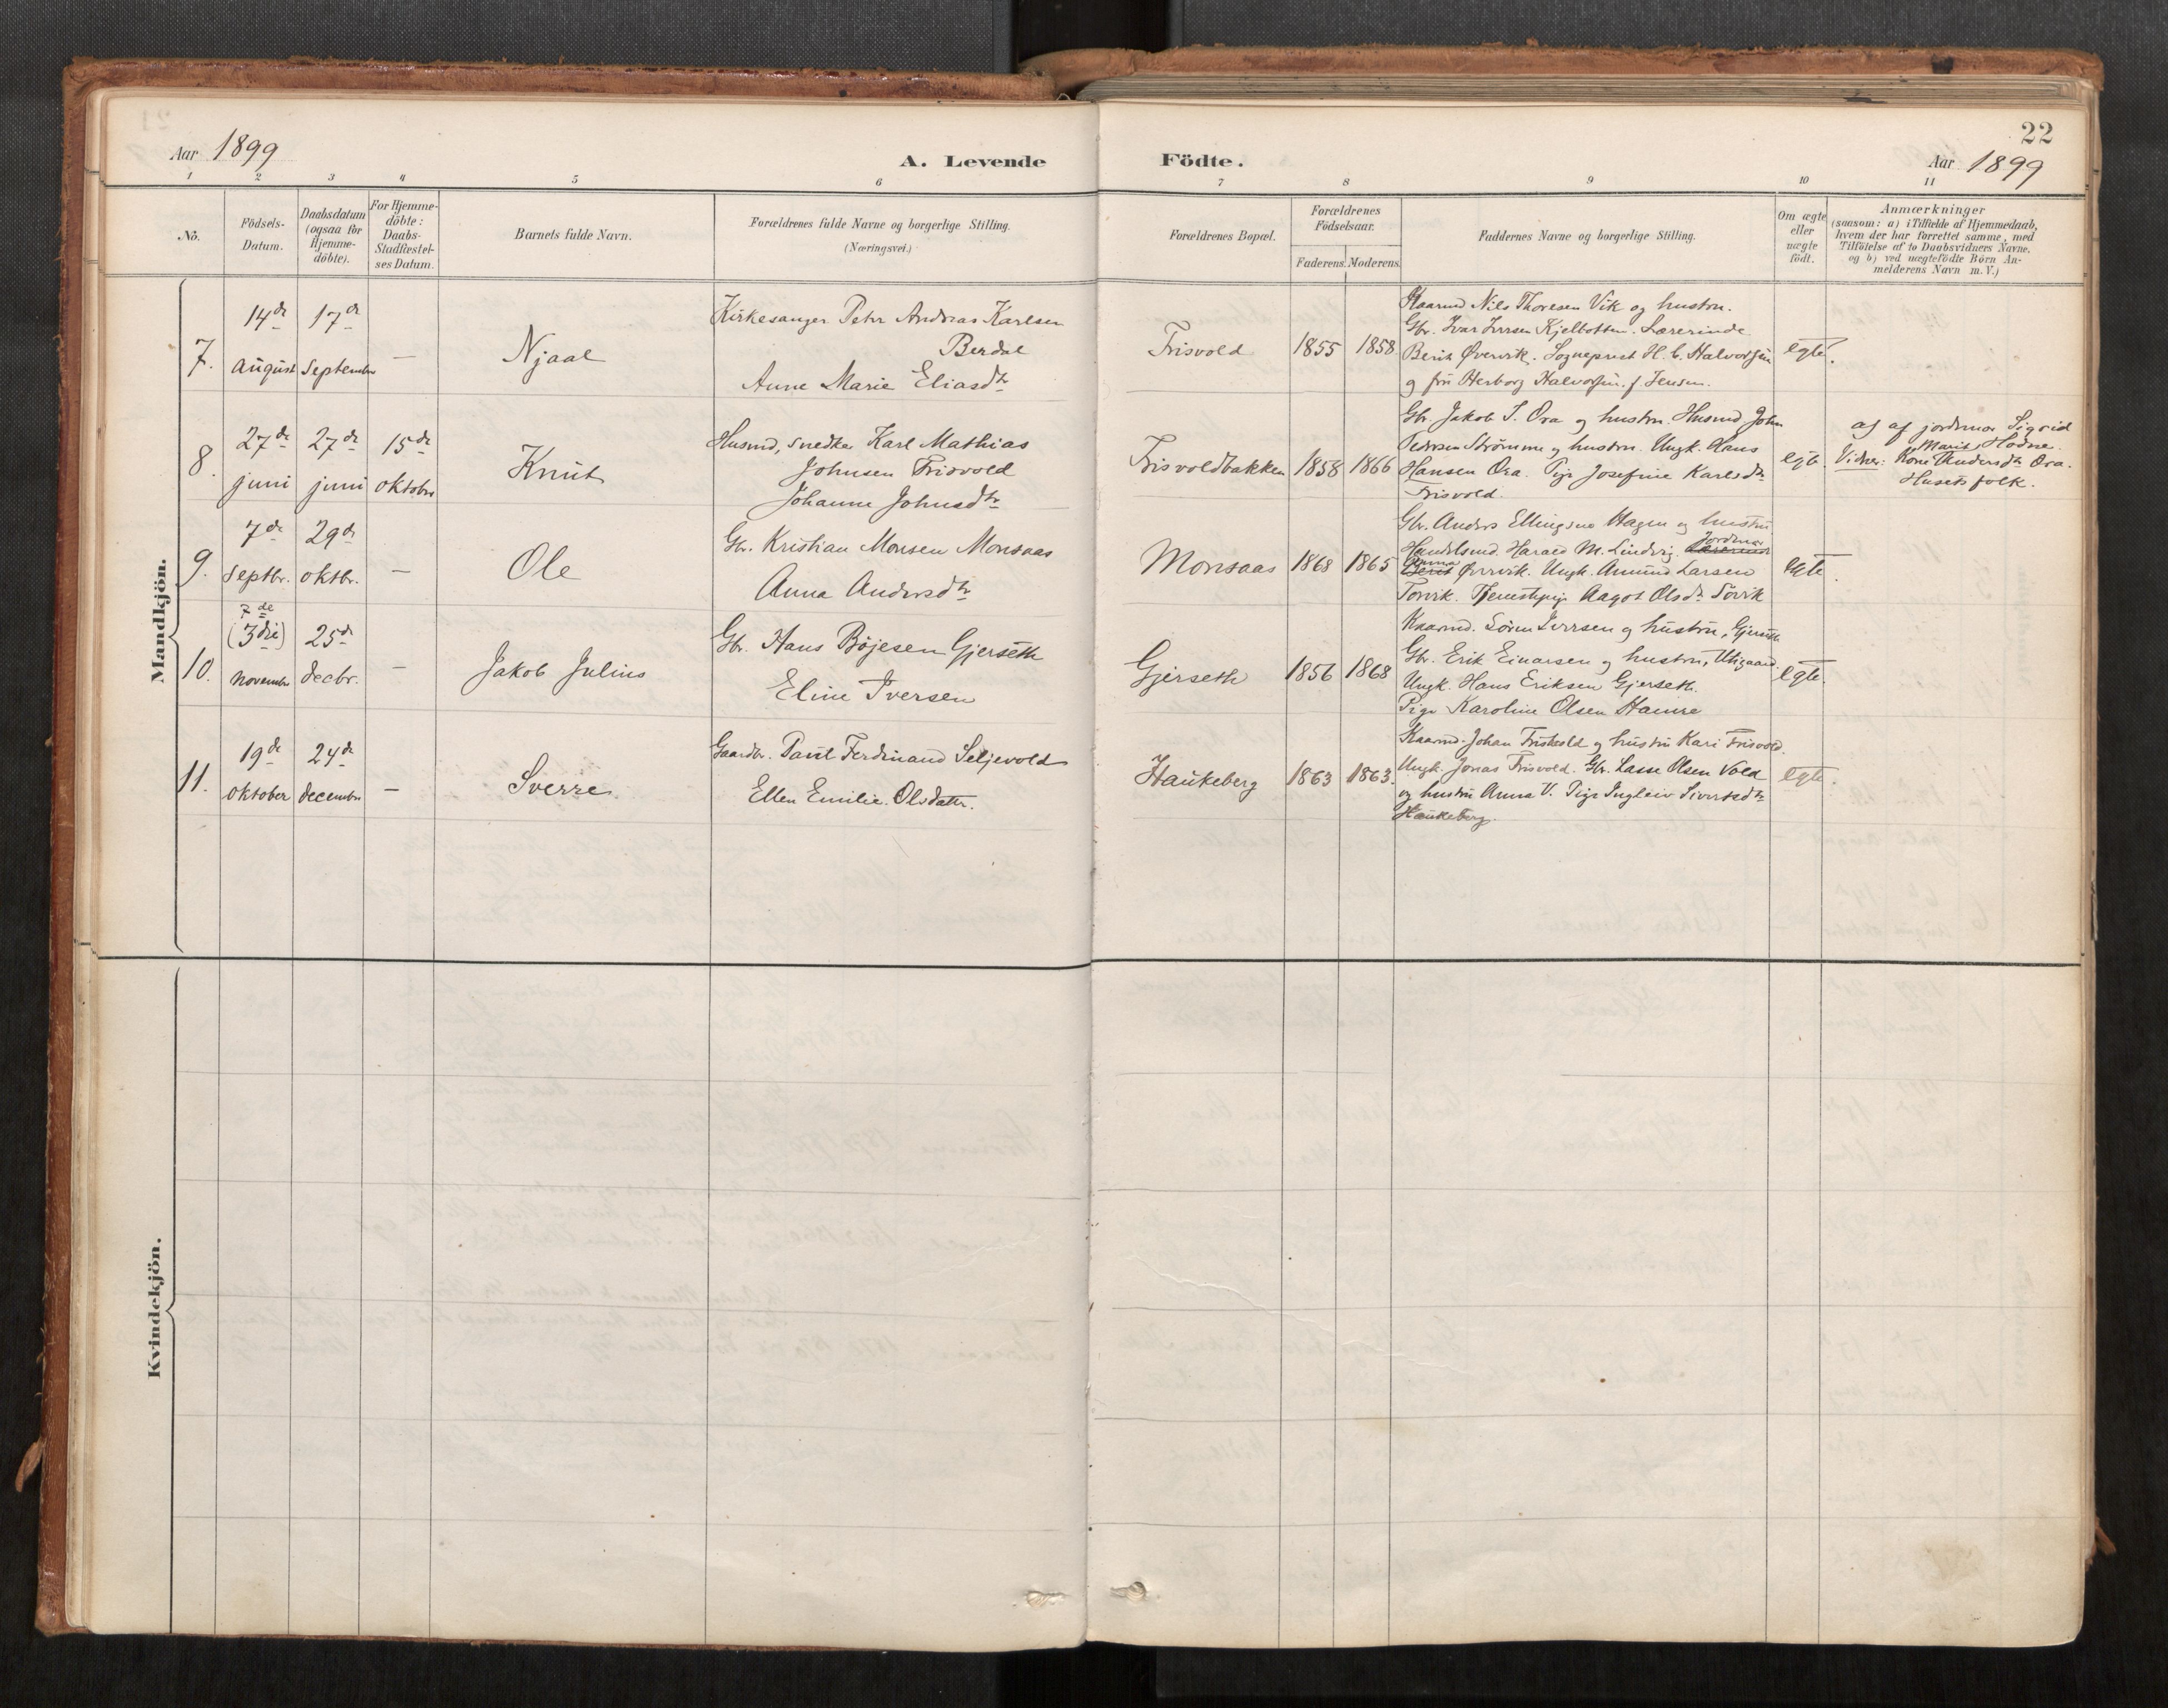 22
Aar 1899
A. Levende Födte.
Aar 1899
1 2 3 4 5 6 7 8 9 10 11
No.
Födsels-Datum.
Daabsdatum (ogsaa for Hjemme-döbte).
For Hjemme-döbte: Daabs-Stadfæstel-ses Datum.
Barnets fulde Navn.
Forældrenes fulde Navne og borgerlige Stilling.
(Næringsvei.)
Forældrenes Bopæl.
Forældrenes Födselsaar.
Faderens. Moderens.
Faddernes Navne og borgerlige Stilling.
Om ægte eller uægte födt.
Anmærkninger
(saasom: a) i Tilfælde af Hjemmedaab,
hvem der har forrettet samme, med
Tilföielse af to Daabsvidners Navne,
og b) ved uægtefödte Börn An-
melderens Navn m. V.)
Mandkjön.
7.
14de august
17de September
—
Njaal
Kirkesanger Peter Andreas Karlsen
Berdal
Anne Marie Eliasdtr
Frisvold
1855 1858
Kaarmd Nils Thoresen Vik og hustru.
Gbr. Ivar Iversen Kjelbotten. Lærerinde
Berit Øvervik. Sogneprest H. C. Halvorsen
og fru Herborg Halvorsen f. Jensen.
egte.
8.
27de juni
27de juni
15de oktober
Knut
Husmd, snedker Karl Mathias
Johnsen Frisvold
Johanne Johnsdtr
Frisvoldbakken
1858 1866
Gbr. Jakob I. Ora og hustru. Husmd John
Pedersen Strømme og hustru. Ungk. Hans
Hansen Ora. Pige Josefine Karlsdtr
Frisvold.
egte.
a) af jordmor Sigrid
Hodne.
Vidner: Kone Marit Andersdtr Ora.
Husets folk.
9.
7de Septbr.
29de oktbr.
—
Ole
Gbr. Kristian Monsen Monsaas
Anna Andersdtr
Monsaas
1868 1865
Gbr. Anders Ellingsen Hagen og hustru
Handelsmd. Harald M. Lindvig. Lærerinde Jordmor
Berit Øvervik. Ungk. Amund Larsen
Torvik. Tjenestepige Aagot Olsdtr Sövik
egte.
10.
7de
(3die) November
25de decbr.
—
Jakob Julius
Gbr. Hans Böjesen Gjerseth
Eline Iversen
Gjerseth
1856 1868
Kaarmd. Sören Iversen og hustru, Gjerseth
Gbr. Erik Einarsen og hustru, Utigaard.
Ungk. Hans Eriksen Gjerseth.
Pige Karoline Olsen Hamre
egte.
11.
19de oktober
24de december
—
Sverre.
Gaardbr. Paul Ferdinand Seljevold
Ellen Emilie Olsdatter.
Haukeberg
1863 1863.
Kaarmd. Johan Frisvold og hustru Kari Frisvold.
Ungk. Jonas Frisvold. Gbr. Lasse Olsen Vold
og hustru Anna V. Pige Ingleiv Sivertsdtr
Haukeberg.
egte.
Kvindekjön.